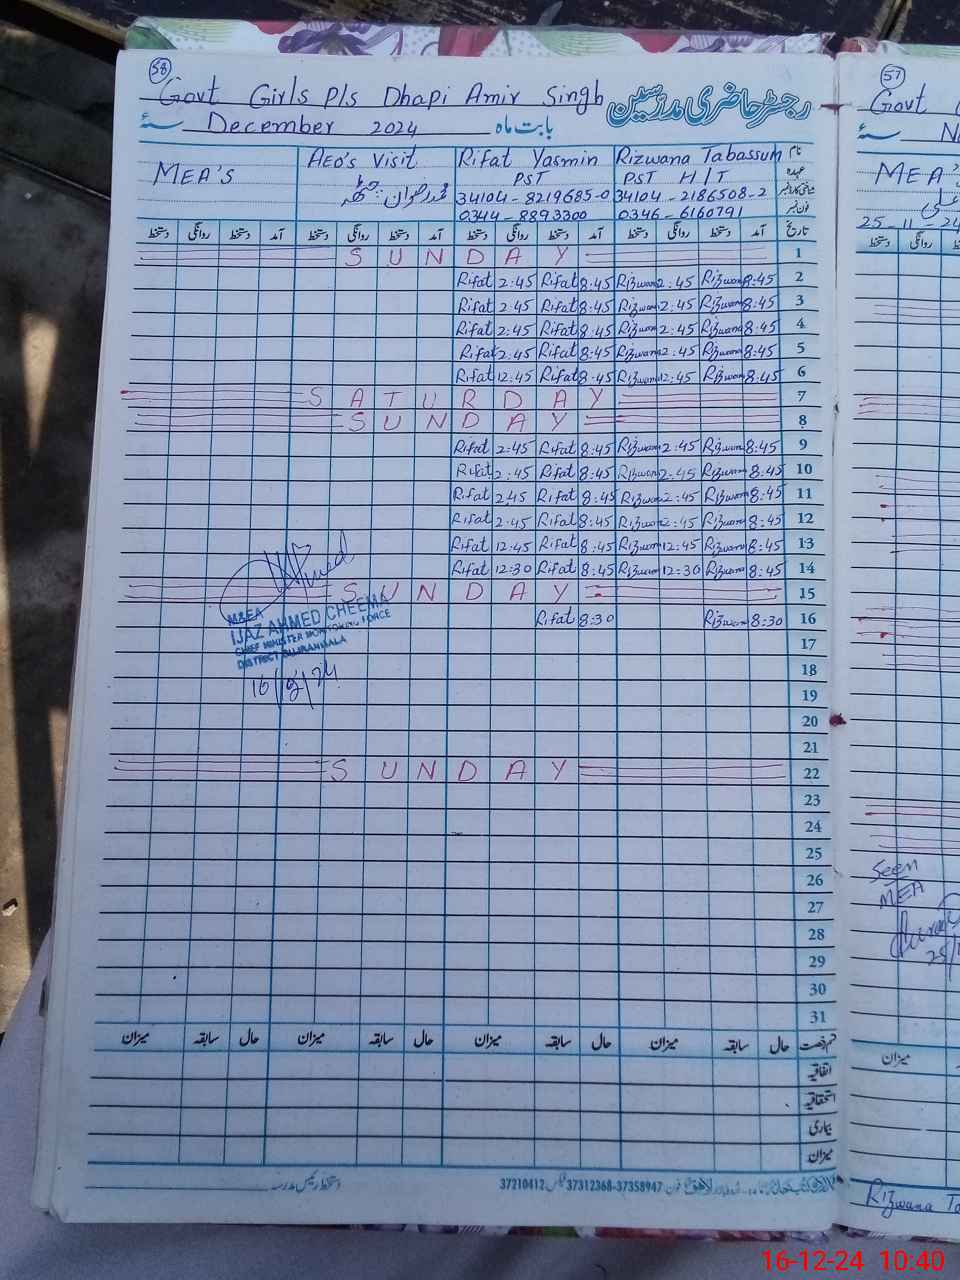 58
Govt Girls P/s Dhapi Amir Singh رجسٹر حاضری مدرسین
December 2024 بابت ماہ سنہ
MEA'S AEO's Visit Rifat Yasmin Rizwana Tabassum نام
PST PST H/T عہدہ
محمد رضوان چٹھہ 34104-8219685-0 34104-2186508-2 شناختی کارڈ نمبر
0344-8893300 0346-6160791 فون نمبر
دستخط روانگی دستخط آمد دستخط روانگی دستخط آمد دستخط روانگی دستخط آمد دستخط روانگی دستخط آمد تاریخ
SUNDAY 1
Rifat 2:45 Rifat 8:45 Rizwana 2:45 Rizwana 8:45 2
Rifat 2:45 Rifat 8:45 Rizwana 2:45 Rizwana 8:45 3
Rifat 2:45 Rifat 8:45 Rizwana 2:45 Rizwana 8:45 4
Rifat 2:45 Rifat 8:45 Rizwana 2:45 Rizwana 8:45 5
Rifat 12:45 Rifat 8:45 Rizwana 12:45 Rizwana 8:45 6
SATURDAY 7
SUNDAY 8
Rifat 2:45 Rifat 8:45 Rizwana 2:45 Rizwana 8:45 9
Rifat 2:45 Rifat 8:45 Rizwana 2:45 Rizwana 8:45 10
Rifat 2:45 Rifat 8:45 Rizwana 2:45 Rizwana 8:45 11
Rifat 2:45 Rifat 8:45 Rizwana 2:45 Rizwana 8:45 12
Rifat 12:45 Rifat 8:45 Rizwana 12:45 Rizwana 8:45 13
Rifat 12:30 Rifat 8:45 Rizwana 12:30 Rizwana 8:45 14
SUNDAY 15
Rifat 8:30 Rizwana 8:30 16
M&EA
IJAZ AHMED CHEEMA
CHIEF MINISTER MONITORING FORCE
DISTRICT GUJRANWALA
16/12/24
17
18
19
20
21
SUNDAY 22
23
24
25
26
27
28
29
30
31
میزان سابقہ حال میزان سابقہ حال میزان سابقہ حال میزان سابقہ حال قسم رخصت
اتفاقیہ
استحقاقیہ
بیماری
میزان
دستخط رئیس مدرسہ
فون 37358947-37312368 فیکس 37210412
57
Govt
MEA
25-11-24
دستخط روانگی
Seen
MEA
25/
میزان
Rizwana
16-12-24 10:40